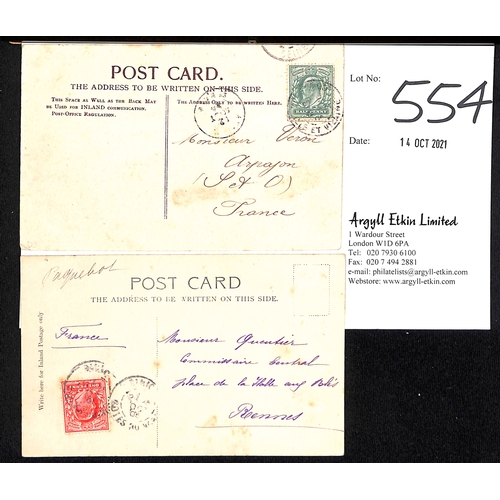 POST CARD.
THE ADDRESS TO BE WRITTEN ON THIS SIDE.
This Space as Well as the Back May
be Used for INLAND communication.
Post-Office Regulation.
The Address Only to be written Here.
HALF PENNY
Monsieur Véron
Arpajon
(S & O)
France
Lot No:
554
Date:
14 OCT 2021
Argyll Etkin Limited
1 Wardour Street
London W1D 6PA
Tel: 020 7930 6100
Fax: 020 7 494 2881
e-mail: philatelists@argyll-etkin.com
Webstore: www.argyll-etkin.com
Paquebot
POST CARD
THE ADDRESS TO BE WRITTEN ON THIS SIDE.
Write here for Inland Postage only
France
Monsieur Quentier
Commissaire Central
place de la Halle aux Blés
Rennes